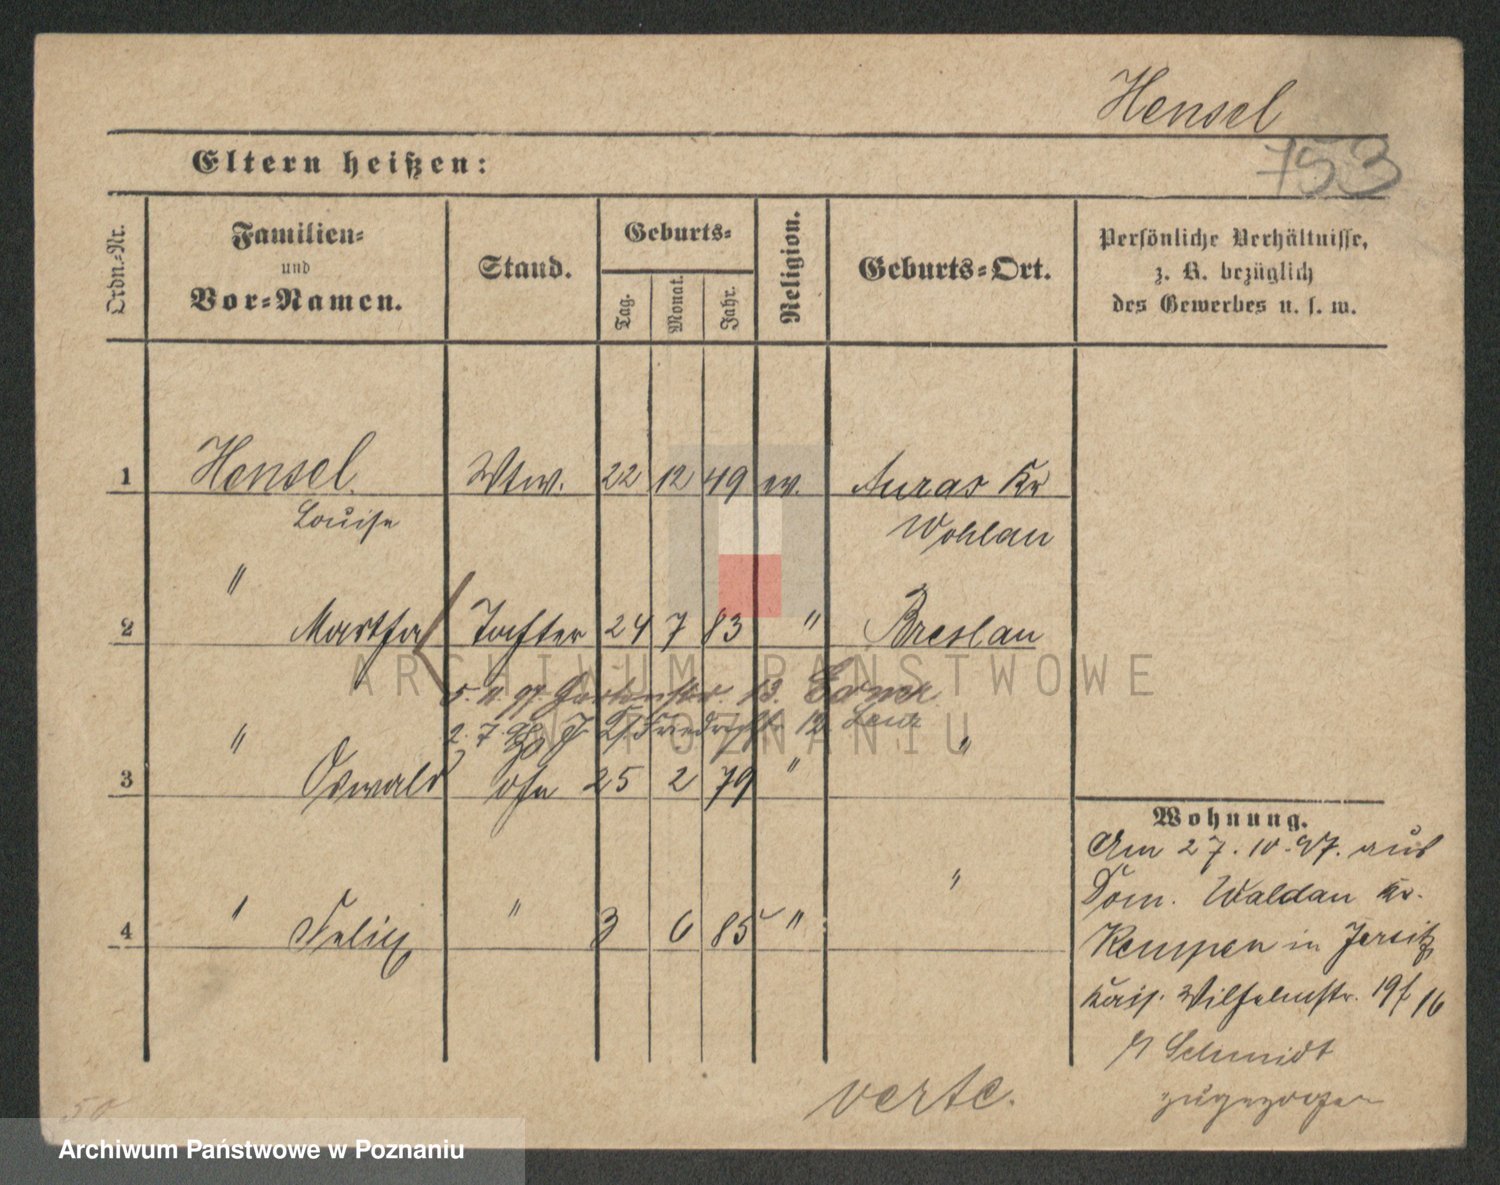 Hensel
753
Eltern heißen:
Ordn.-Nr.
Familien-
und
Vor-Namen.
Stand.
Geburts-
Tag.
Monat.
Jahr.
Religion.
Geburts-Ort.
Persönliche Verhältnisse,
z. B. bezüglich
des Gewerbes u. s. w.
1 Hensel Wtw. 22 12 49 ev. Auras Kr
Louise Wohlau
"
2 Martha Tochter 24 7 83 " Breslau
5. 11. 97 Gartenstr. 13.
2. 7. 12
" "
3 Oswald Sohn 25 2 79 "
"
4 " Felix " 3 6 85 "
Wohnung.
Am 27.10.97. aus
Dom. Waldau Kr.
Kempen in Jersitz
Kais. Wilhelmstr. 19/16
Schmidt
zugezogen
verte.
50
ARCHIWUM PAŃSTWOWE
W POZNANIU
Archiwum Państwowe w Poznaniu